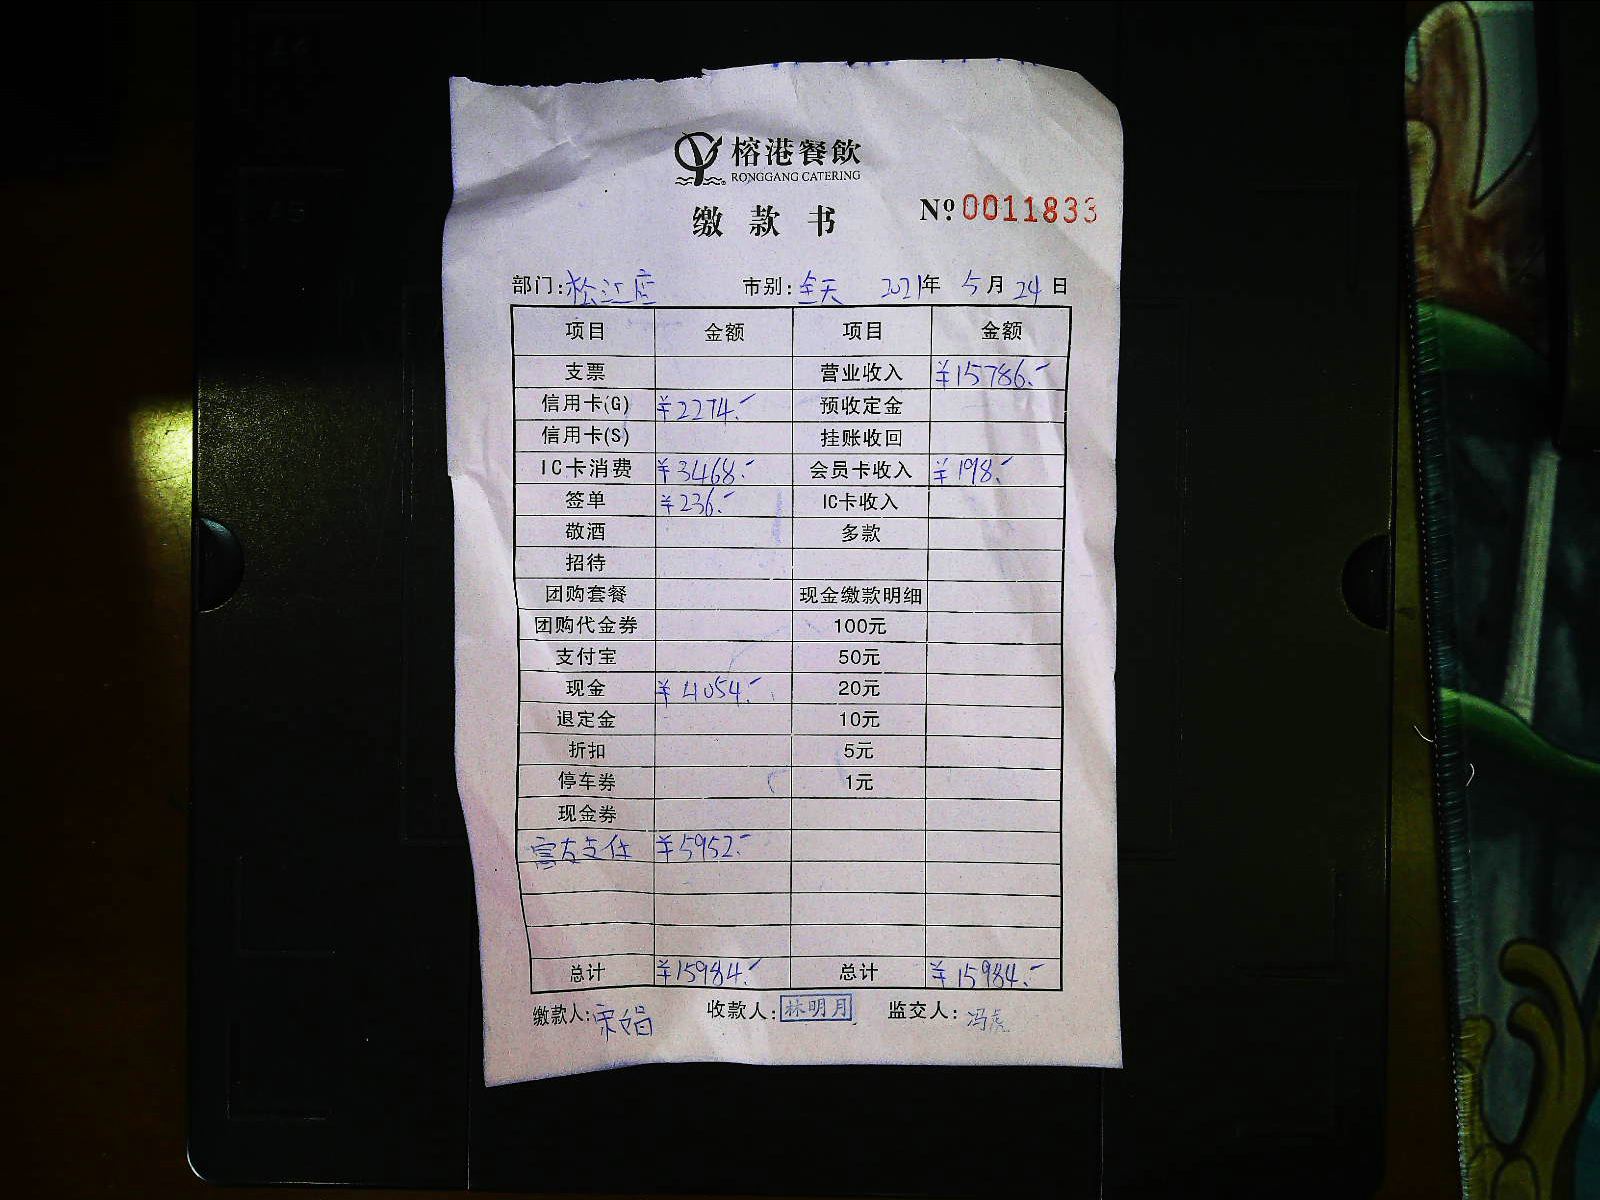 榕港餐飲
RONGGANG CATERING
缴款书 № 0011833
部门:松江店 市别:全天 2021年 5月 24日
项目 金额 项目 金额
支票 营业收入 ¥15786.-
信用卡(G) ¥2274.- 预收定金
信用卡(S) 挂账收回
IC卡消费 ¥3468.- 会员卡收入 ¥198.-
签单 ¥236.- IC卡收入
敬酒 多款
招待
团购套餐 现金缴款明细
团购代金券 100元
支付宝 50元
现金 ¥4054.- 20元
退定金 10元
折扣 5元
停车券 1元
现金券
富友支付 ¥5952.-
总计 ¥15984.- 总计 ¥15984.-
缴款人: 收款人:林明月 监交人:冯虎